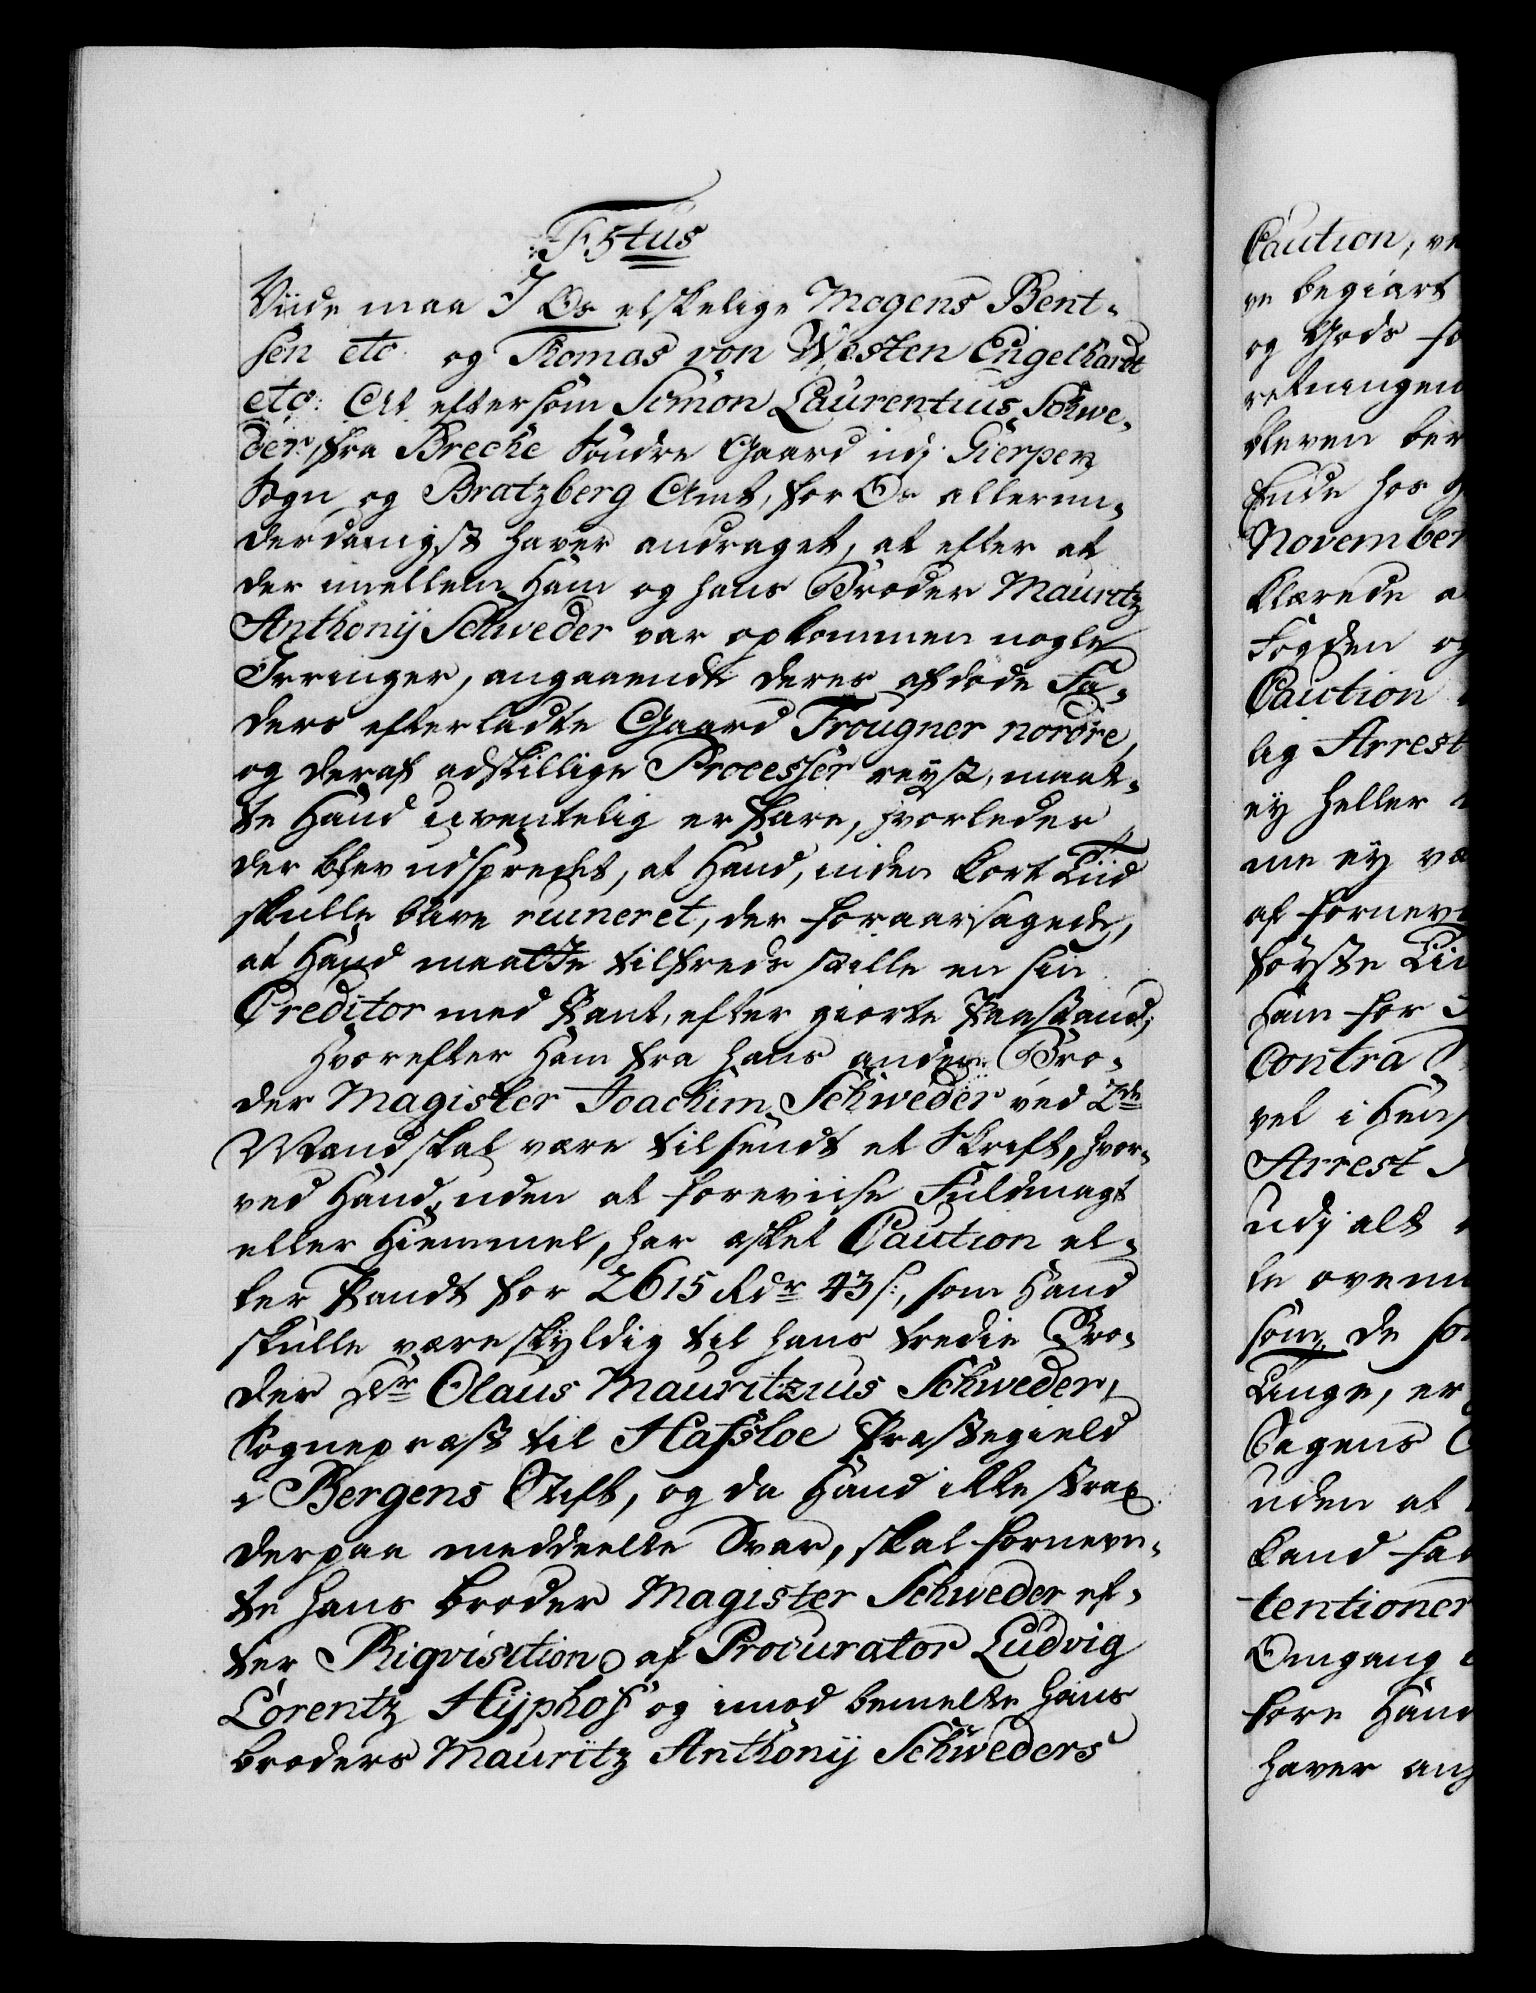 F5tus
Viide maa I Os elskelige Mogens Bent-
sen etc. og Thomas von Westen Engelhardt
etc: At eftersom Simon Laurentius Schwe-
der, fra Brecke søndre Gaard udj Gierpen
Sogn og Bratzberg Amt, for Os allerun-
derdanigst haver andraget, at efter at
der imellem Ham og hans Broder Mauritz
Anthonij Schweder var opkommen nogle
Irringer, angaaende deres afdøde Fa-
ders efterladte Gaard Frougner nordre,
og deraf adskillige Processer reyst, maat-
te Hand uventelig erfare, hvorledes
der blev udspredt, at Hand, inden kort Tiid
skulle blive ruineret, der foraarsagede,
at Hand maatte tilfreds stille en sin
Creditor med Pant, efter giorte Paastand;
Hvorefter Ham fra hans anden Bro-
der Magister Joachim Schweder ved 2de
Mænd skal være tilsendt et Skrift, hvor-
ved Hand, uden at foreviise Fuldmagt
eller Hiemmel, har æsket Caution el-
ler Pandt for 2615 Rdr 43 s:, som Hand
skulle være skyldig til hans tredie Bro-
der Hr Olaus Mauritzius Schweder,
Sognepræst til Hafsloe Præstegield
i Bergens Stift, og da Hand ikke strax
derpaa meddeelte Svar, skal fornevn-
te hans broder Magister Schweder ef-
ter Riqvisition af Procurator Ludvig
Lorentz Hyphof og imod bemelte hans
broders Mauritz Anthonij Schweders
Caution,
begiært
og Gods
retningen
bleven
Ende hos
November
klærede
Fogden og
Caution
lig Arrest
ey heller
me ey
af
første
Ham for
Contra
vel i
Arrest
udj alt
le
som, de
Lange, er
Sagens
uden at
kand
tentioner
Omgang
fore Hand
haver